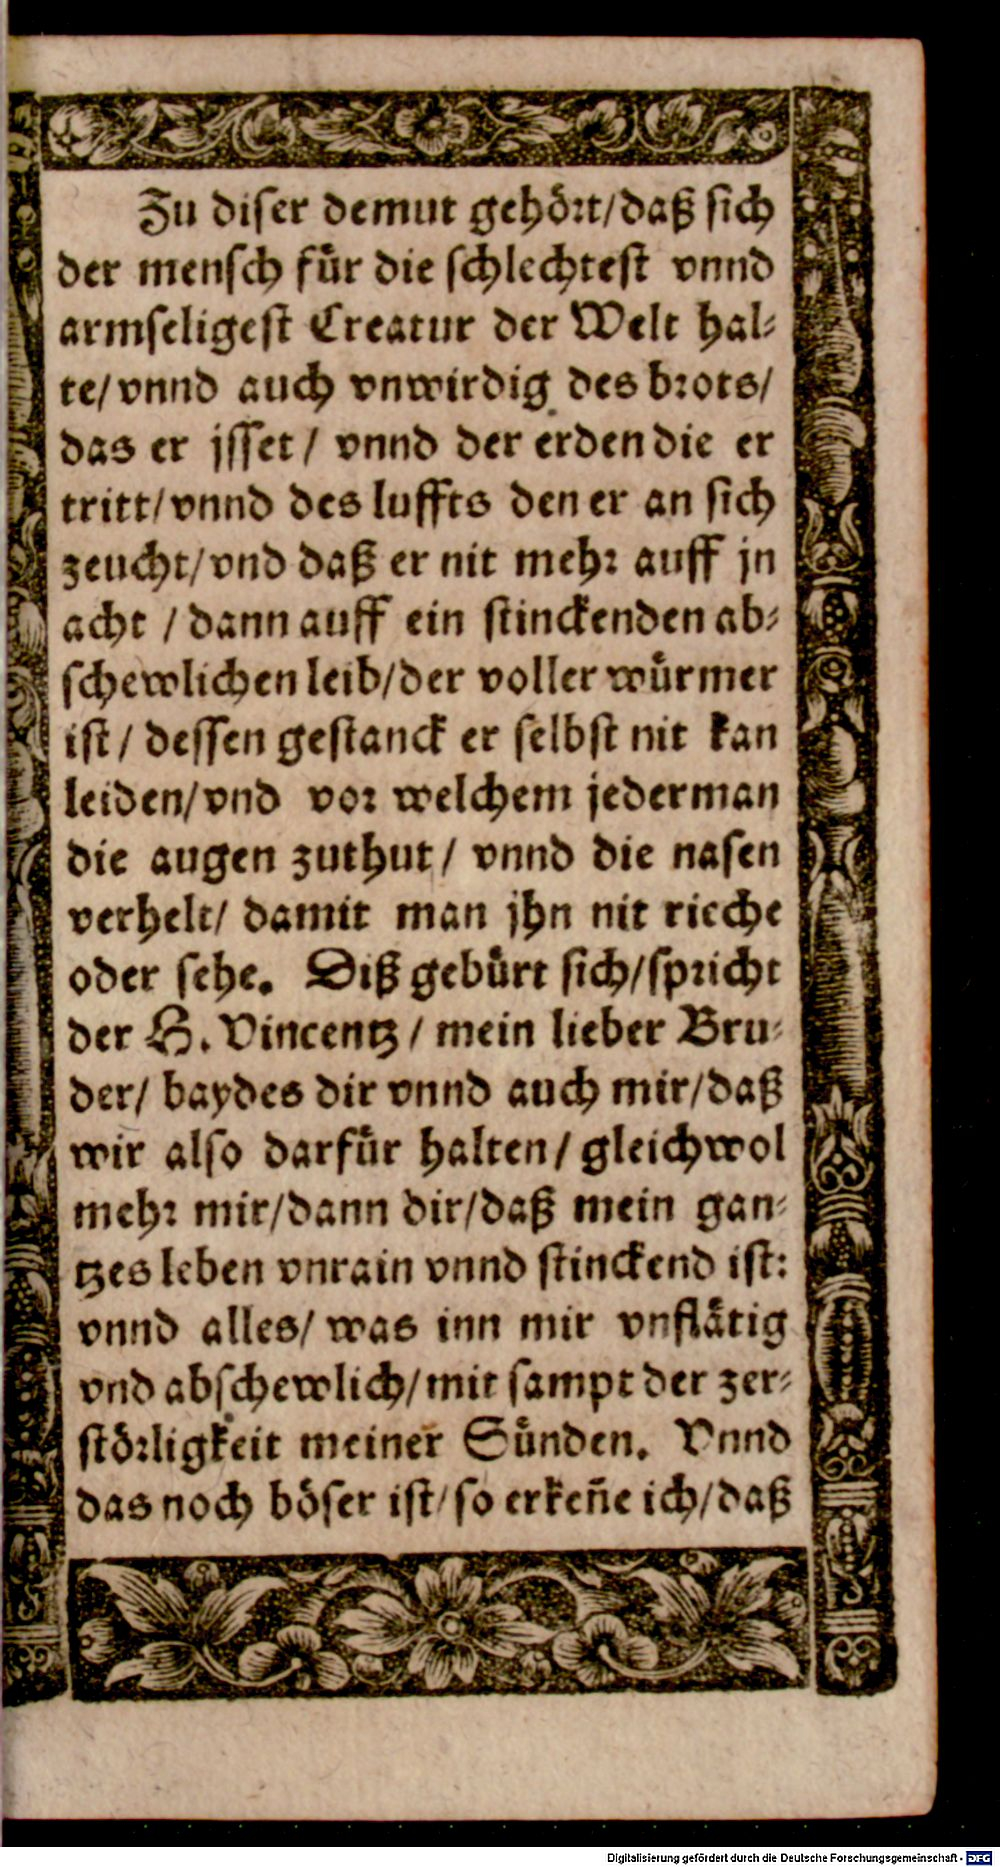 Zu diser demut gehört/daß sich
der mensch für die schlechtest vnnd
armseligest Creatur der Welt hal-
te/vnnd auch vnwirdig des brots/
das er jsset/ vnnd der erden die er
tritt/vnnd des luffts den er an sich
zeucht/vnd daß er nit mehr auff jn
acht / dann auff ein stinckenden ab-
schewlichen leib/der voller würmer
ist/ dessen gestanck er selbst nit kan
leiden/vnd vor welchem jederman
die augen zuthut/ vnnd die nasen
verhelt/ damit man jhn nit rieche
oder sehe. Diß gebürt sich/spricht
der H. Vincentz / mein lieber Bru-
der/ baydes dir vnnd auch mir/daß
wir also darfür halten/ gleichwol
mehr mir/dann dir/daß mein gan-
tzes leben vnrain vnnd stinckend ist:
vnnd alles/ was inn mir vnflätig
vnd abschewlich/mit sampt der zer-
störligkeit meiner Sünden. Vnnd
das noch böser ist/so erkeñe ich/daß
Digitalisierung gefördert durch die Deutsche Forschungsgemeinschaft - DFG